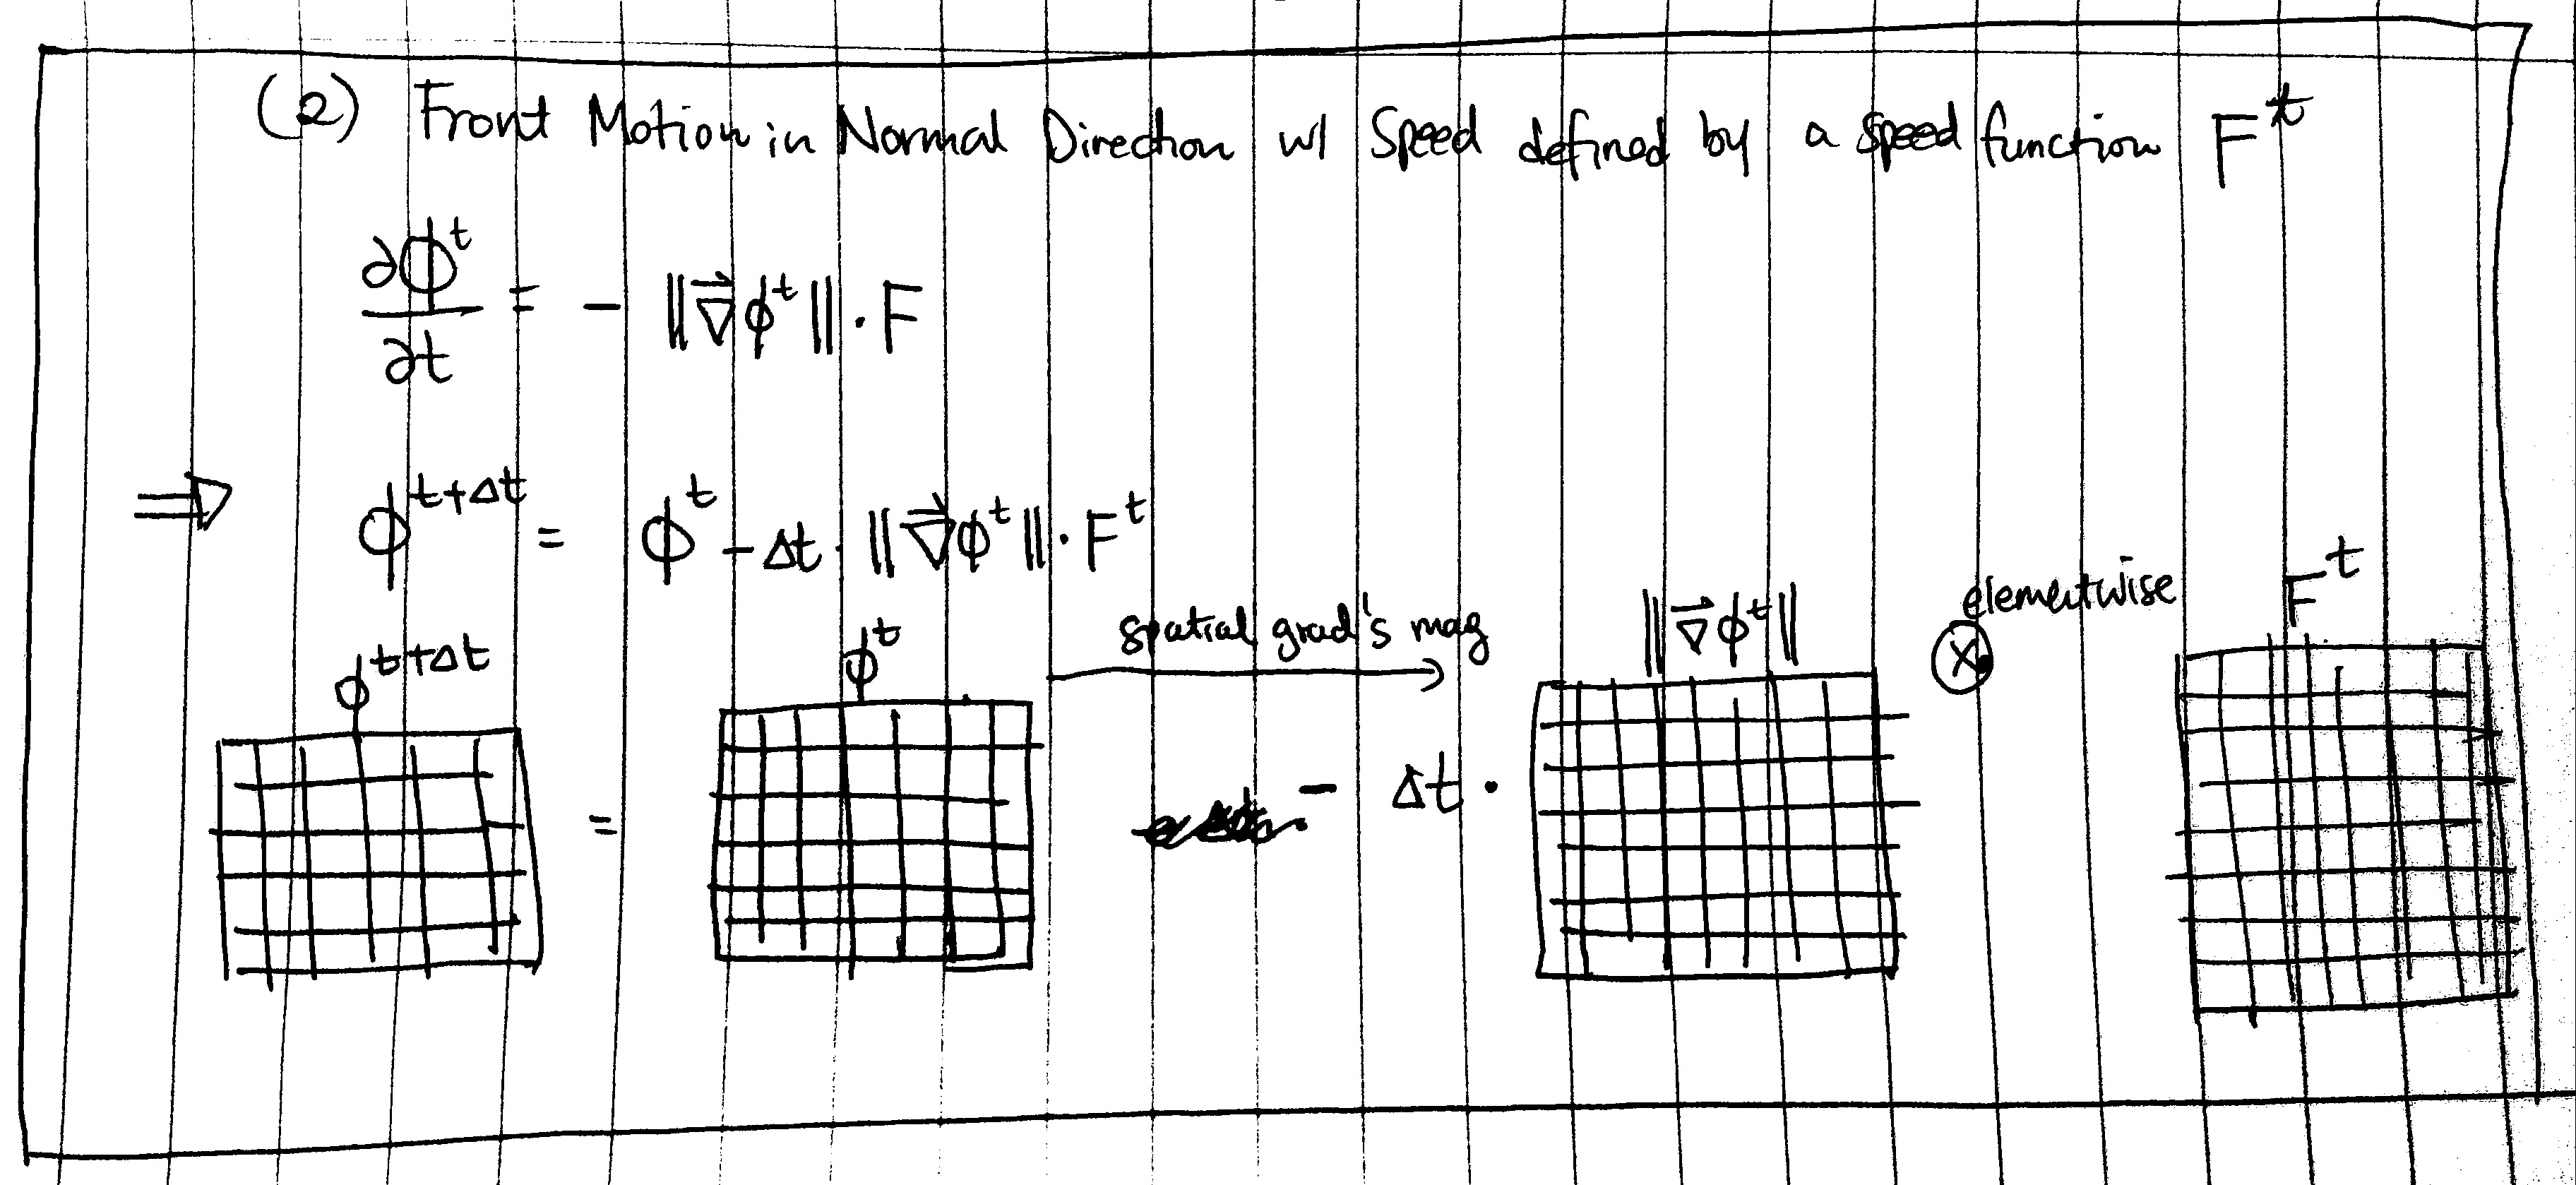 (2) Front Motion in Normal Direction w/ Speed defined by a speed function F^t
∂ϕ^t/∂t = - ||∇⃗ϕ^t|| · F
⇒ ϕ^{t+Δt} = ϕ^t - Δt · ||∇⃗ϕ^t|| · F^t
ϕ^{t+Δt} ϕ^t spatial grad's mag ||∇⃗ϕ^t|| elementwise F^t
⊗
= - Δt ·